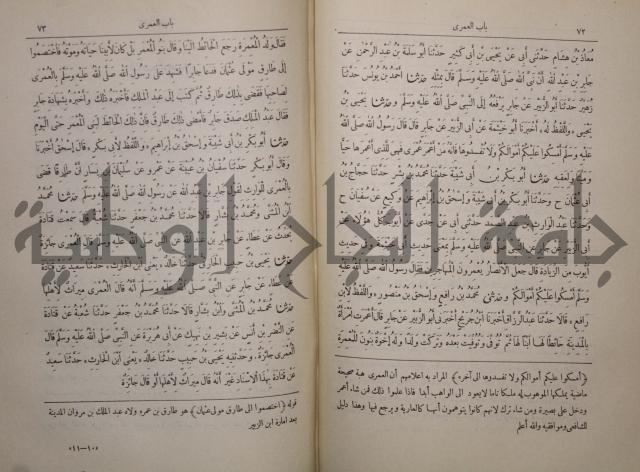 ٧٢
باب العمرى
مُعَاذُ بْنُ هِشَامٍ حَدَّثَنِي أَبِي عَنْ يَحْيَى بْنِ أَبِي كَثِيرٍ حَدَّثَنَا أَبُو سَلَمَةَ بْنُ عَبْدِ الرَّحْمٰنِ عَنْ
جَابِرِ بْنِ عَبْدِ اللهِ أَنَّ نَبِيَّ اللهِ صَلَّى اللهُ عَلَيْهِ وَسَلَّمَ قَالَ بِمِثْلِهِ حَدَّثَنَا أَحْمَدُ بْنُ يُونُسَ حَدَّثَنَا
زُهَيْرٌ حَدَّثَنَا أَبُو الزُّبَيْرِ عَنْ جَابِرٍ يَرْفَعُهُ إِلَى النَّبِيِّ صَلَّى اللهُ عَلَيْهِ وَسَلَّمَ وَحَدَّثَنَا يَحْيَى بْنُ
يَحْيَى، وَاللَّفْظُ لَهُ، أَخْبَرَنَا أَبُو خَيْثَمَةَ عَنْ أَبِي الزُّبَيْرِ عَنْ جَابِرٍ قَالَ قَالَ رَسُولُ اللهِ صَلَّى اللهُ
عَلَيْهِ وَسَلَّمَ أَمْسِكُوا عَلَيْكُمْ أَمْوَالَكُمْ وَلَا تُفْسِدُوهَا فَإِنَّهُ مَنْ أَعْمَرَ عُمْرَى فَهِيَ لِلَّذِي أُعْمِرَهَا حَيًّا
وَمَيِّتًا وَلِعَقِبِهِ حَدَّثَنَا أَبُو بَكْرِ بْنُ أَبِي شَيْبَةَ حَدَّثَنَا مُحَمَّدُ بْنُ بِشْرٍ حَدَّثَنَا حَجَّاجُ بْنُ
أَبِي عُثْمَانَ ح وَحَدَّثَنَا أَبُو بَكْرِ بْنُ أَبِي شَيْبَةَ وَإِسْحٰقُ بْنُ إِبْرَاهِيمَ عَنْ وَكِيعٍ عَنْ سُفْيَانَ ح
وَحَدَّثَنَا عَبْدُ الْوَارِثِ بْنُ عَبْدِ الصَّمَدِ حَدَّثَنِي أَبِي عَنْ جَدِّي عَنْ أَيُّوبَ كُلُّ هٰؤُلَاءِ عَنْ
أَبِي الزُّبَيْرِ عَنْ جَابِرٍ عَنِ النَّبِيِّ صَلَّى اللهُ عَلَيْهِ وَسَلَّمَ بِمَعْنَى حَدِيثِ أَبِي خَيْثَمَةَ وَفِي حَدِيثِ
أَيُّوبَ مِنَ الزِّيَادَةِ قَالَ جَعَلَ الْأَنْصَارُ يُعْمِرُونَ الْمُهَاجِرِينَ فَقَالَ رَسُولُ اللهِ صَلَّى اللهُ عَلَيْهِ
وَسَلَّمَ أَمْسِكُوا عَلَيْكُمْ أَمْوَالَكُمْ وَحَدَّثَنِي مُحَمَّدُ بْنُ رَافِعٍ وَإِسْحٰقُ بْنُ مَنْصُورٍ، وَاللَّفْظُ لِابْنِ
رَافِعٍ، قَالَا حَدَّثَنَا عَبْدُ الرَّزَّاقِ أَخْبَرَنَا ابْنُ جُرَيْجٍ أَخْبَرَنِي أَبُو الزُّبَيْرِ عَنْ جَابِرٍ قَالَ أَعْمَرَتِ امْرَأَةٌ
بِالْمَدِينَةِ حَائِطًا لَهَا ابْنًا لَهَا ثُمَّ تُوُفِّيَ وَتُوُفِّيَتْ بَعْدَهُ وَتَرَكَتْ وَلَدًا وَلَهُ إِخْوَةٌ بَنُونَ لِلْمُعْمِرَةِ
﴿أمسكوا عليكم أموالكم ولا تفسدوها الى آخره﴾ المراد به اعلامهم أن العمرى هبة صحيحة
ماضية يملكها الموهوب له ملكا تاما لايعود الى الواهب أبدا فاذا علموا ذلك فمن شاء أعمر
ودخل على بصيرة ومن شاء ترك لانهم كانوا يتوهمون أنها كالعارية ويرجع فيها وهذا دليل
للشافعى وموافقيه والله أعلم
باب العمرى
٧٣
فَقَالَ وَلَدُ الْمُعْمِرَةِ رَجَعَ الْحَائِطُ إِلَيْنَا وَقَالَ بَنُو الْمُعْمَرِ بَلْ كَانَ لِأَبِينَا حَيَاتَهُ وَمَوْتَهُ فَاخْتَصَمُوا
إِلَى طَارِقٍ مَوْلَى عُثْمَانَ فَدَعَا جَابِرًا فَشَهِدَ عَلَى رَسُولِ اللهِ صَلَّى اللهُ عَلَيْهِ وَسَلَّمَ بِالْعُمْرَى
لِصَاحِبِهَا فَقَضَى بِذٰلِكَ طَارِقٌ ثُمَّ كَتَبَ إِلَى عَبْدِ الْمَلِكِ فَأَخْبَرَهُ ذٰلِكَ وَأَخْبَرَهُ بِشَهَادَةِ جَابِرٍ
فَقَالَ عَبْدُ الْمَلِكِ صَدَقَ جَابِرٌ فَأَمْضَى ذٰلِكَ طَارِقٌ فَإِنَّ ذٰلِكَ الْحَائِطَ لِبَنِي الْمُعْمَرِ حَتَّى الْيَوْمِ
حَدَّثَنَا أَبُو بَكْرِ بْنُ أَبِي شَيْبَةَ وَإِسْحٰقُ بْنُ إِبْرَاهِيمَ، وَاللَّفْظُ لِأَبِي بَكْرٍ، قَالَ إِسْحٰقُ أَخْبَرَنَا
وَقَالَ أَبُو بَكْرٍ حَدَّثَنَا سُفْيَانُ بْنُ عُيَيْنَةَ عَنْ عَمْرٍو عَنْ سُلَيْمَانَ بْنِ يَسَارٍ أَنَّ طَارِقًا قَضَى
بِالْعُمْرَى لِلْوَارِثِ لِقَوْلِ جَابِرِ بْنِ عَبْدِ اللهِ عَنْ رَسُولِ اللهِ صَلَّى اللهُ عَلَيْهِ وَسَلَّمَ حَدَّثَنَا مُحَمَّدُ
ابْنُ الْمُثَنَّى وَمُحَمَّدُ بْنُ بَشَّارٍ قَالَا حَدَّثَنَا مُحَمَّدُ بْنُ جَعْفَرٍ حَدَّثَنَا شُعْبَةُ قَالَ سَمِعْتُ قَتَادَةَ
يُحَدِّثُ عَنْ عَطَاءٍ عَنْ جَابِرِ بْنِ عَبْدِ اللهِ عَنِ النَّبِيِّ صَلَّى اللهُ عَلَيْهِ وَسَلَّمَ قَالَ الْعُمْرَى جَائِزَةٌ
حَدَّثَنَا يَحْيَى بْنُ حَبِيبٍ الْحَارِثِيُّ حَدَّثَنَا خَالِدٌ، يَعْنِي ابْنَ الْحَارِثِ، حَدَّثَنَا سَعِيدٌ عَنْ قَتَادَةَ
عَنْ عَطَاءٍ عَنْ جَابِرٍ عَنِ النَّبِيِّ صَلَّى اللهُ عَلَيْهِ وَسَلَّمَ أَنَّهُ قَالَ الْعُمْرَى مِيرَاثٌ لِأَهْلِهَا
حَدَّثَنَا مُحَمَّدُ بْنُ الْمُثَنَّى وَابْنُ بَشَّارٍ قَالَا حَدَّثَنَا مُحَمَّدُ بْنُ جَعْفَرٍ حَدَّثَنَا شُعْبَةُ عَنْ قَتَادَةَ
عَنِ النَّضْرِ بْنِ أَنَسٍ عَنْ بَشِيرِ بْنِ نَهِيكٍ عَنْ أَبِي هُرَيْرَةَ عَنِ النَّبِيِّ صَلَّى اللهُ عَلَيْهِ وَسَلَّمَ قَالَ
الْعُمْرَى جَائِزَةٌ. وَحَدَّثَنِيهِ يَحْيَى بْنُ حَبِيبٍ حَدَّثَنَا خَالِدٌ، يَعْنِي ابْنَ الْحَارِثِ، حَدَّثَنَا سَعِيدٌ
عَنْ قَتَادَةَ بِهٰذَا الْإِسْنَادِ غَيْرَ أَنَّهُ قَالَ مِيرَاثٌ لِأَهْلِهَا أَوْ قَالَ جَائِزَةٌ
قوله ﴿اختصموا الى طارق مولى عثمان﴾ هو طارق بن عمرو ولاه عبد الملك بن مروان المدينة
بعد امارة ابن الزبير
«١٠-١١»
جامعة النجاح الوطنية